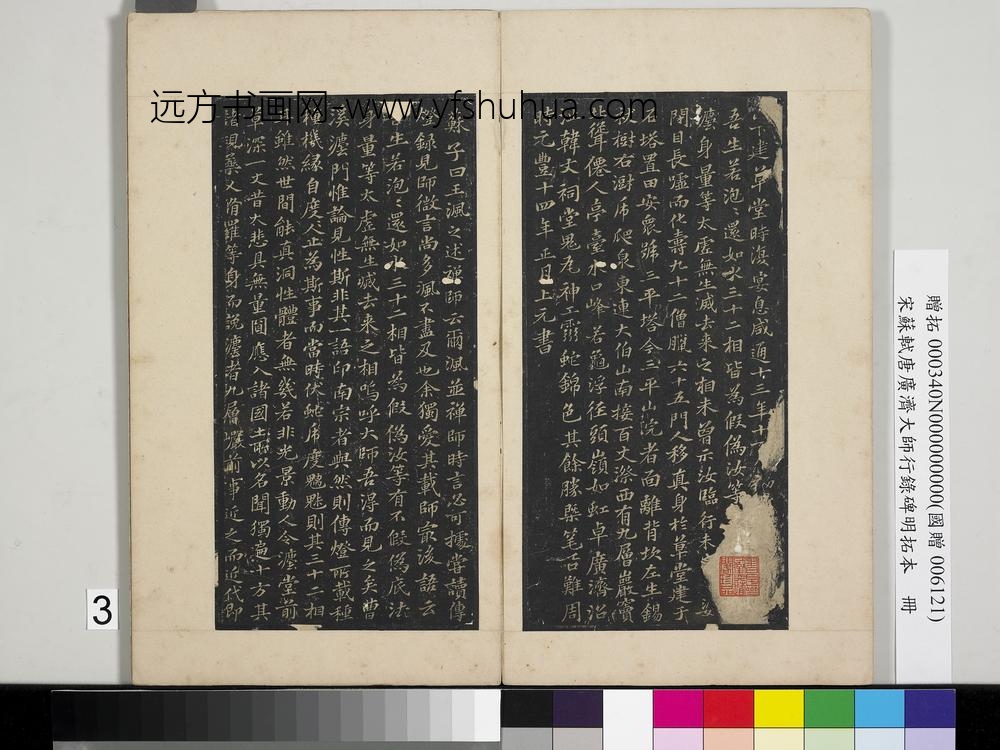 下建草堂時復宴息咸通十三年十
吾生若泡〻還如水三十二相皆為假偽汝等
灋身量等太虛無生滅去来之相未曾示汝臨行未
閉目長噓而化壽九十二僧臘六十五門人移真身於草堂建于
石塔置田安衆號三平塔今三平山院者面離背坎左生錫
樹右澍乕爬泉東連大伯山南接百丈漈西有九層巖竇
聳僊人亭臺水口峰若龜浮徑頭嶺如虹卓廣濟治
韓文祠堂鬼尨神工靈蛇錦色其餘勝槩笔口難周
時元豐十四年正月上元書
蘇子曰王諷之述禪師云爾諷並禪師時言必可據嘗讀傳
燈録見師微言尚多諷不盡及也余獨愛其載師最後語云
吾生若泡〻還如水三十二相皆為假偽汝等有不假偽底法
身量等太虛無生滅去来之相嗚呼大師吾淂而見之矣曹
溪灋門惟論見性斯非其一語印南宗者與然則傳燈所載種
種機緣自度人止為斯事而當時伏蛇乕度魑魅則其三十二相
耳雖然世間能真洞性體者無幾若非光景動人今灋堂前
草深一丈昔大悲具無量聞應入諸國土而以名聞獨遍十方其
諸現藥叉脩羅等身而說灋者九層巖前事近之而近代即
远方书画网-www.yfshuhua.com
3
贈拓 000340N000000000(國贈 006121)
宋蘇軾唐廣濟大師行錄碑明拓本 冊